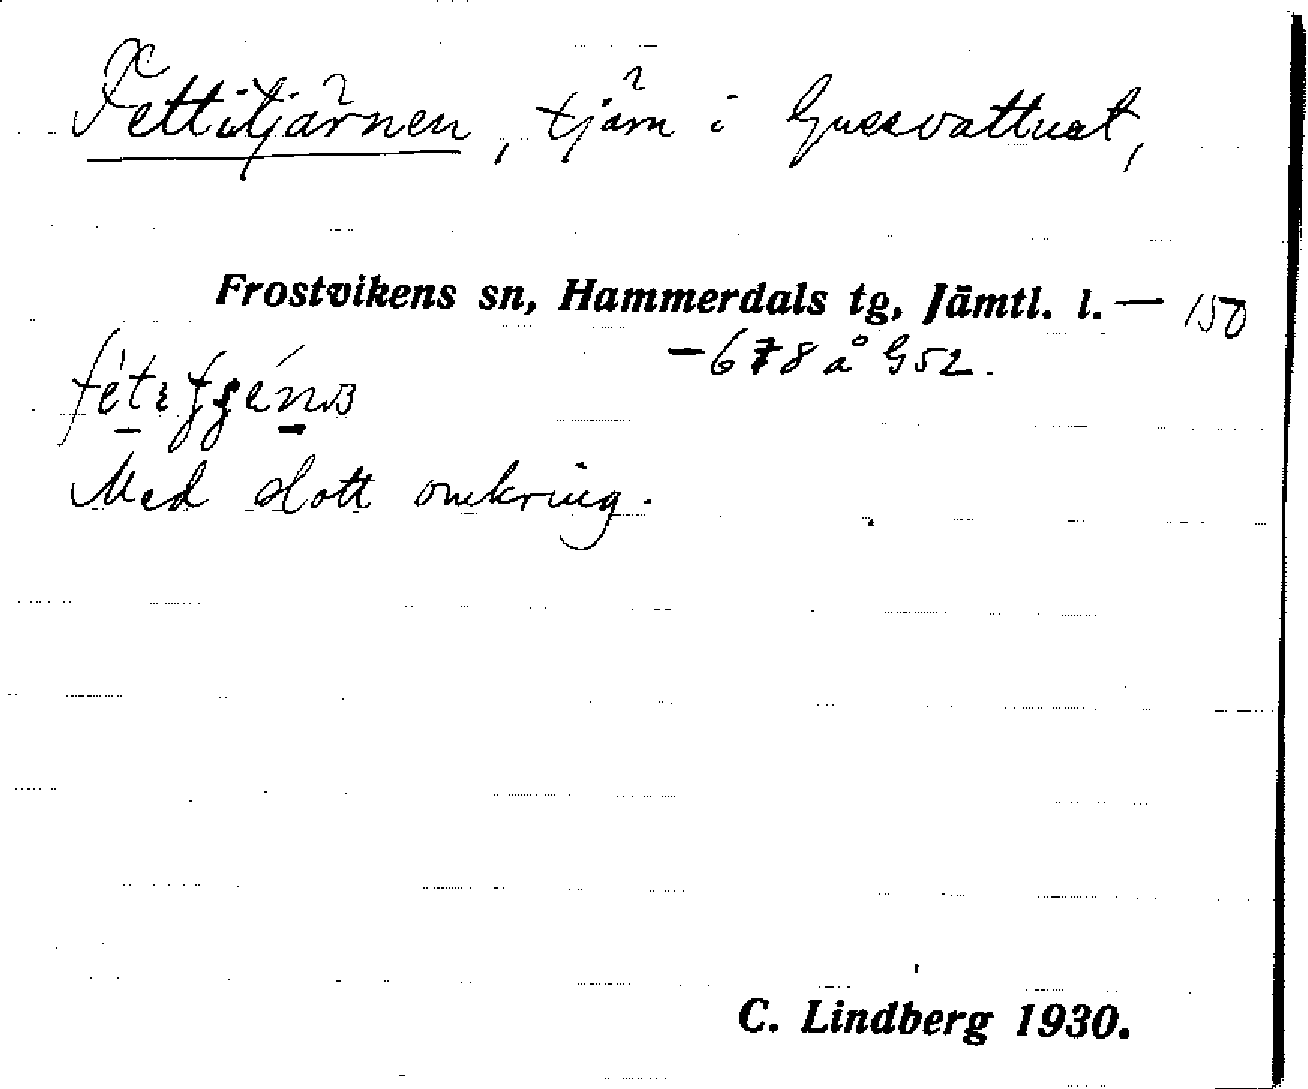 Fettitjärnen, tjärn i Gussvattnet,
Frostvikens sn, Hammerdals tg, Jämtl. l. — 150
— 678 å G52.
Med slott omkring.
C. Lindberg 1930.